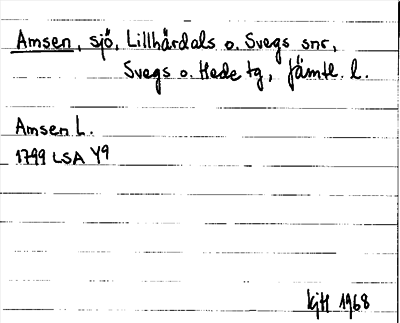 Amsen, sjö, Lillhärdals o. Svegs snr,
Svegs o. Hede tg, Jämtl. l.
Amsen L.
1799 LSA Y9
KjH 1968